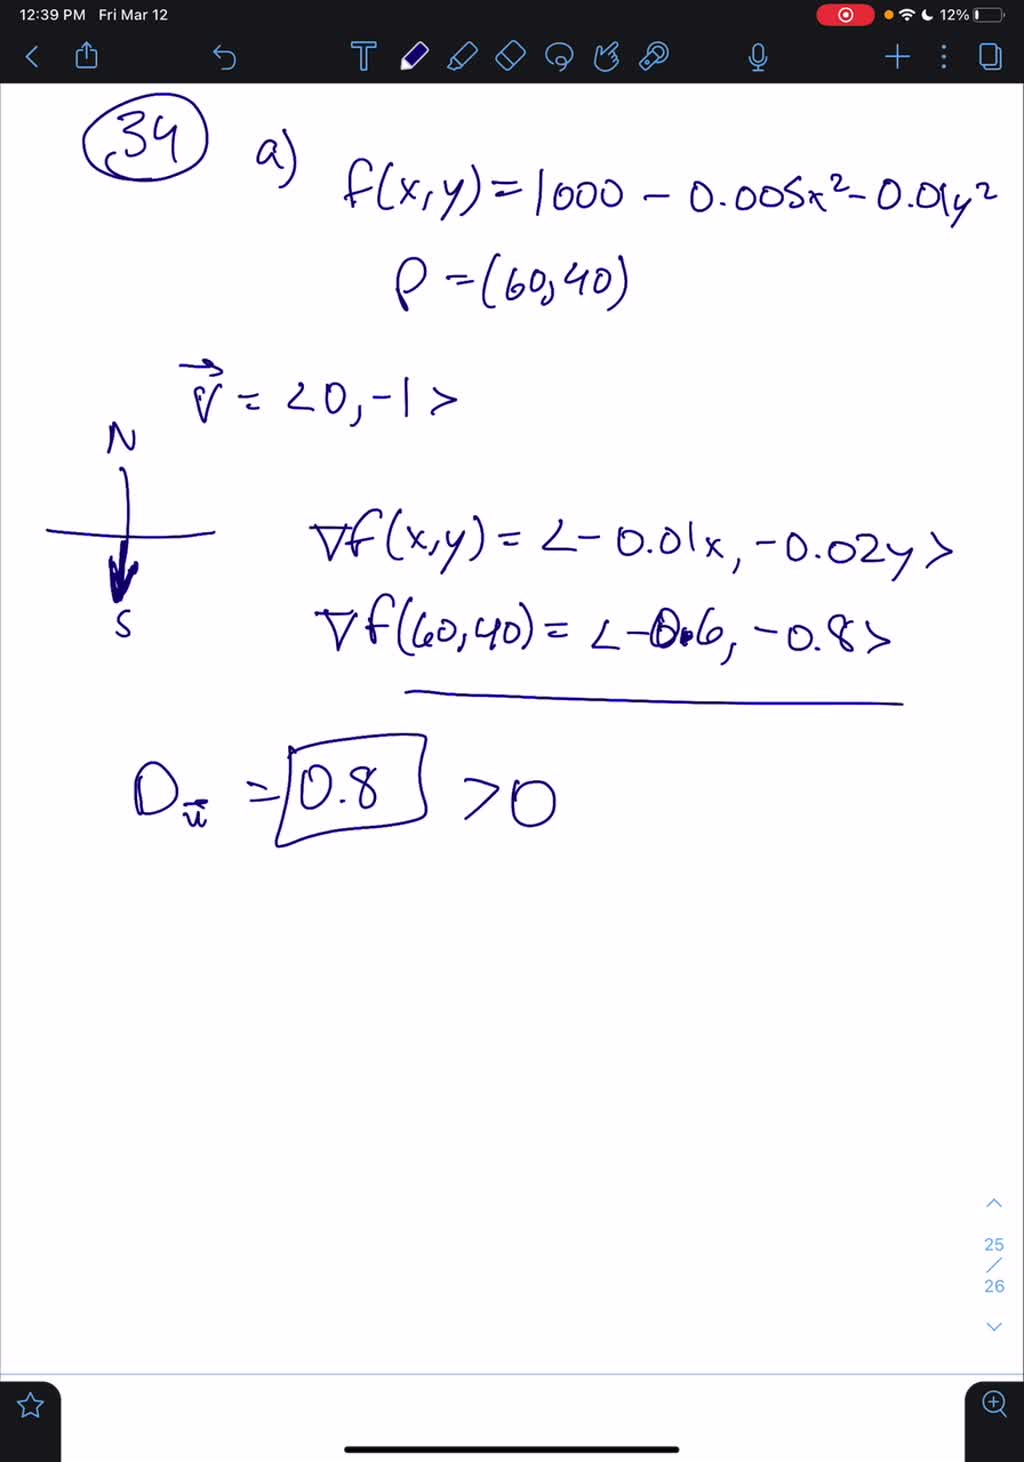 12:39 PM Fri Mar 12 12%
34 a) f(x,y)=1000-0.005x²-0.01y²
P=(60,40)
v⃗=<0,-1>
N
∇f(x,y)=<-0.01x,-0.02y>
S
∇f(60,40)=<-0.6,-0.8>
D_u⃗ = 0.8 >0
25
/
26